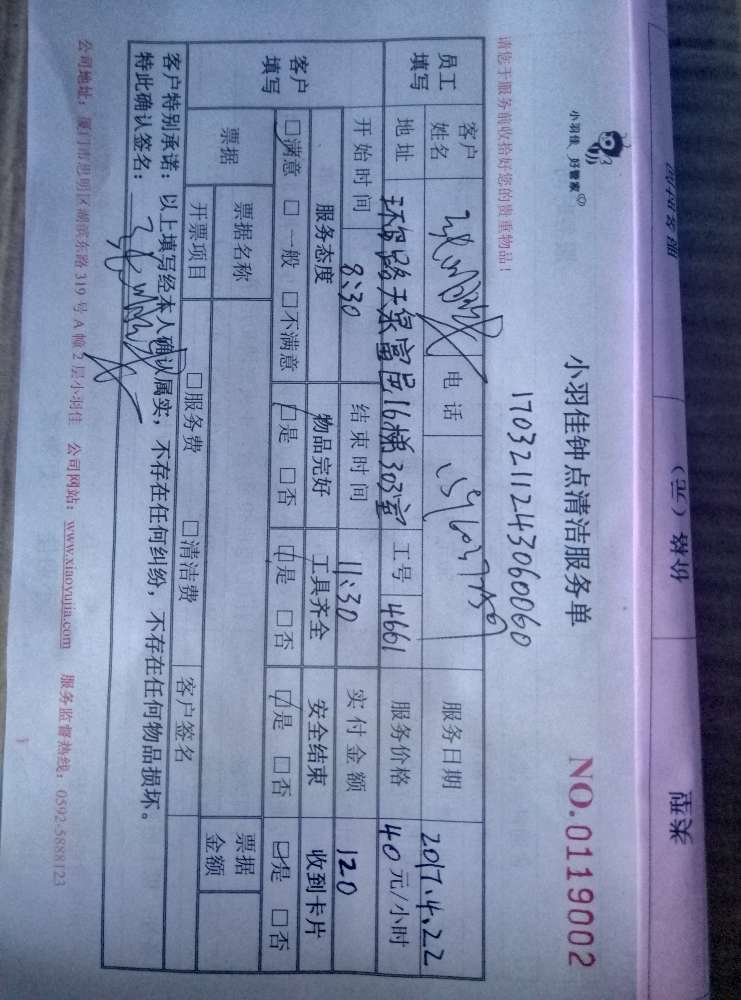 小羽佳 好管家
小羽佳钟点清洁服务单
NO.0119002
1703211243060060
请您于服务前收拾好您的贵重物品!
员工填写 客户姓名 电话 服务日期 2017.4.22
地址 16梯303室 工号 4661 服务价格 40元/小时
开始时间 8:30 结束时间 11:30 实付金额 120
客户填写 服务态度 物品完好 工具齐全 安全结束 收到卡片
☑满意 □一般 □不满意 ☑是 □否 ☑是 □否 ☑是 □否 ☑是 □否
票据 票据名称 票据金额
开票项目 □服务费 □清洁费 客户签名
客户特别承诺:以上填写经本人确认属实,不存在任何纠纷,不存在任何物品损坏。
特此确认签名:
公司地址:厦门市思明区湖滨东路319号A幢2层小羽佳 公司网站:www.xiaoyujia.com 服务监督热线:0592-5888123